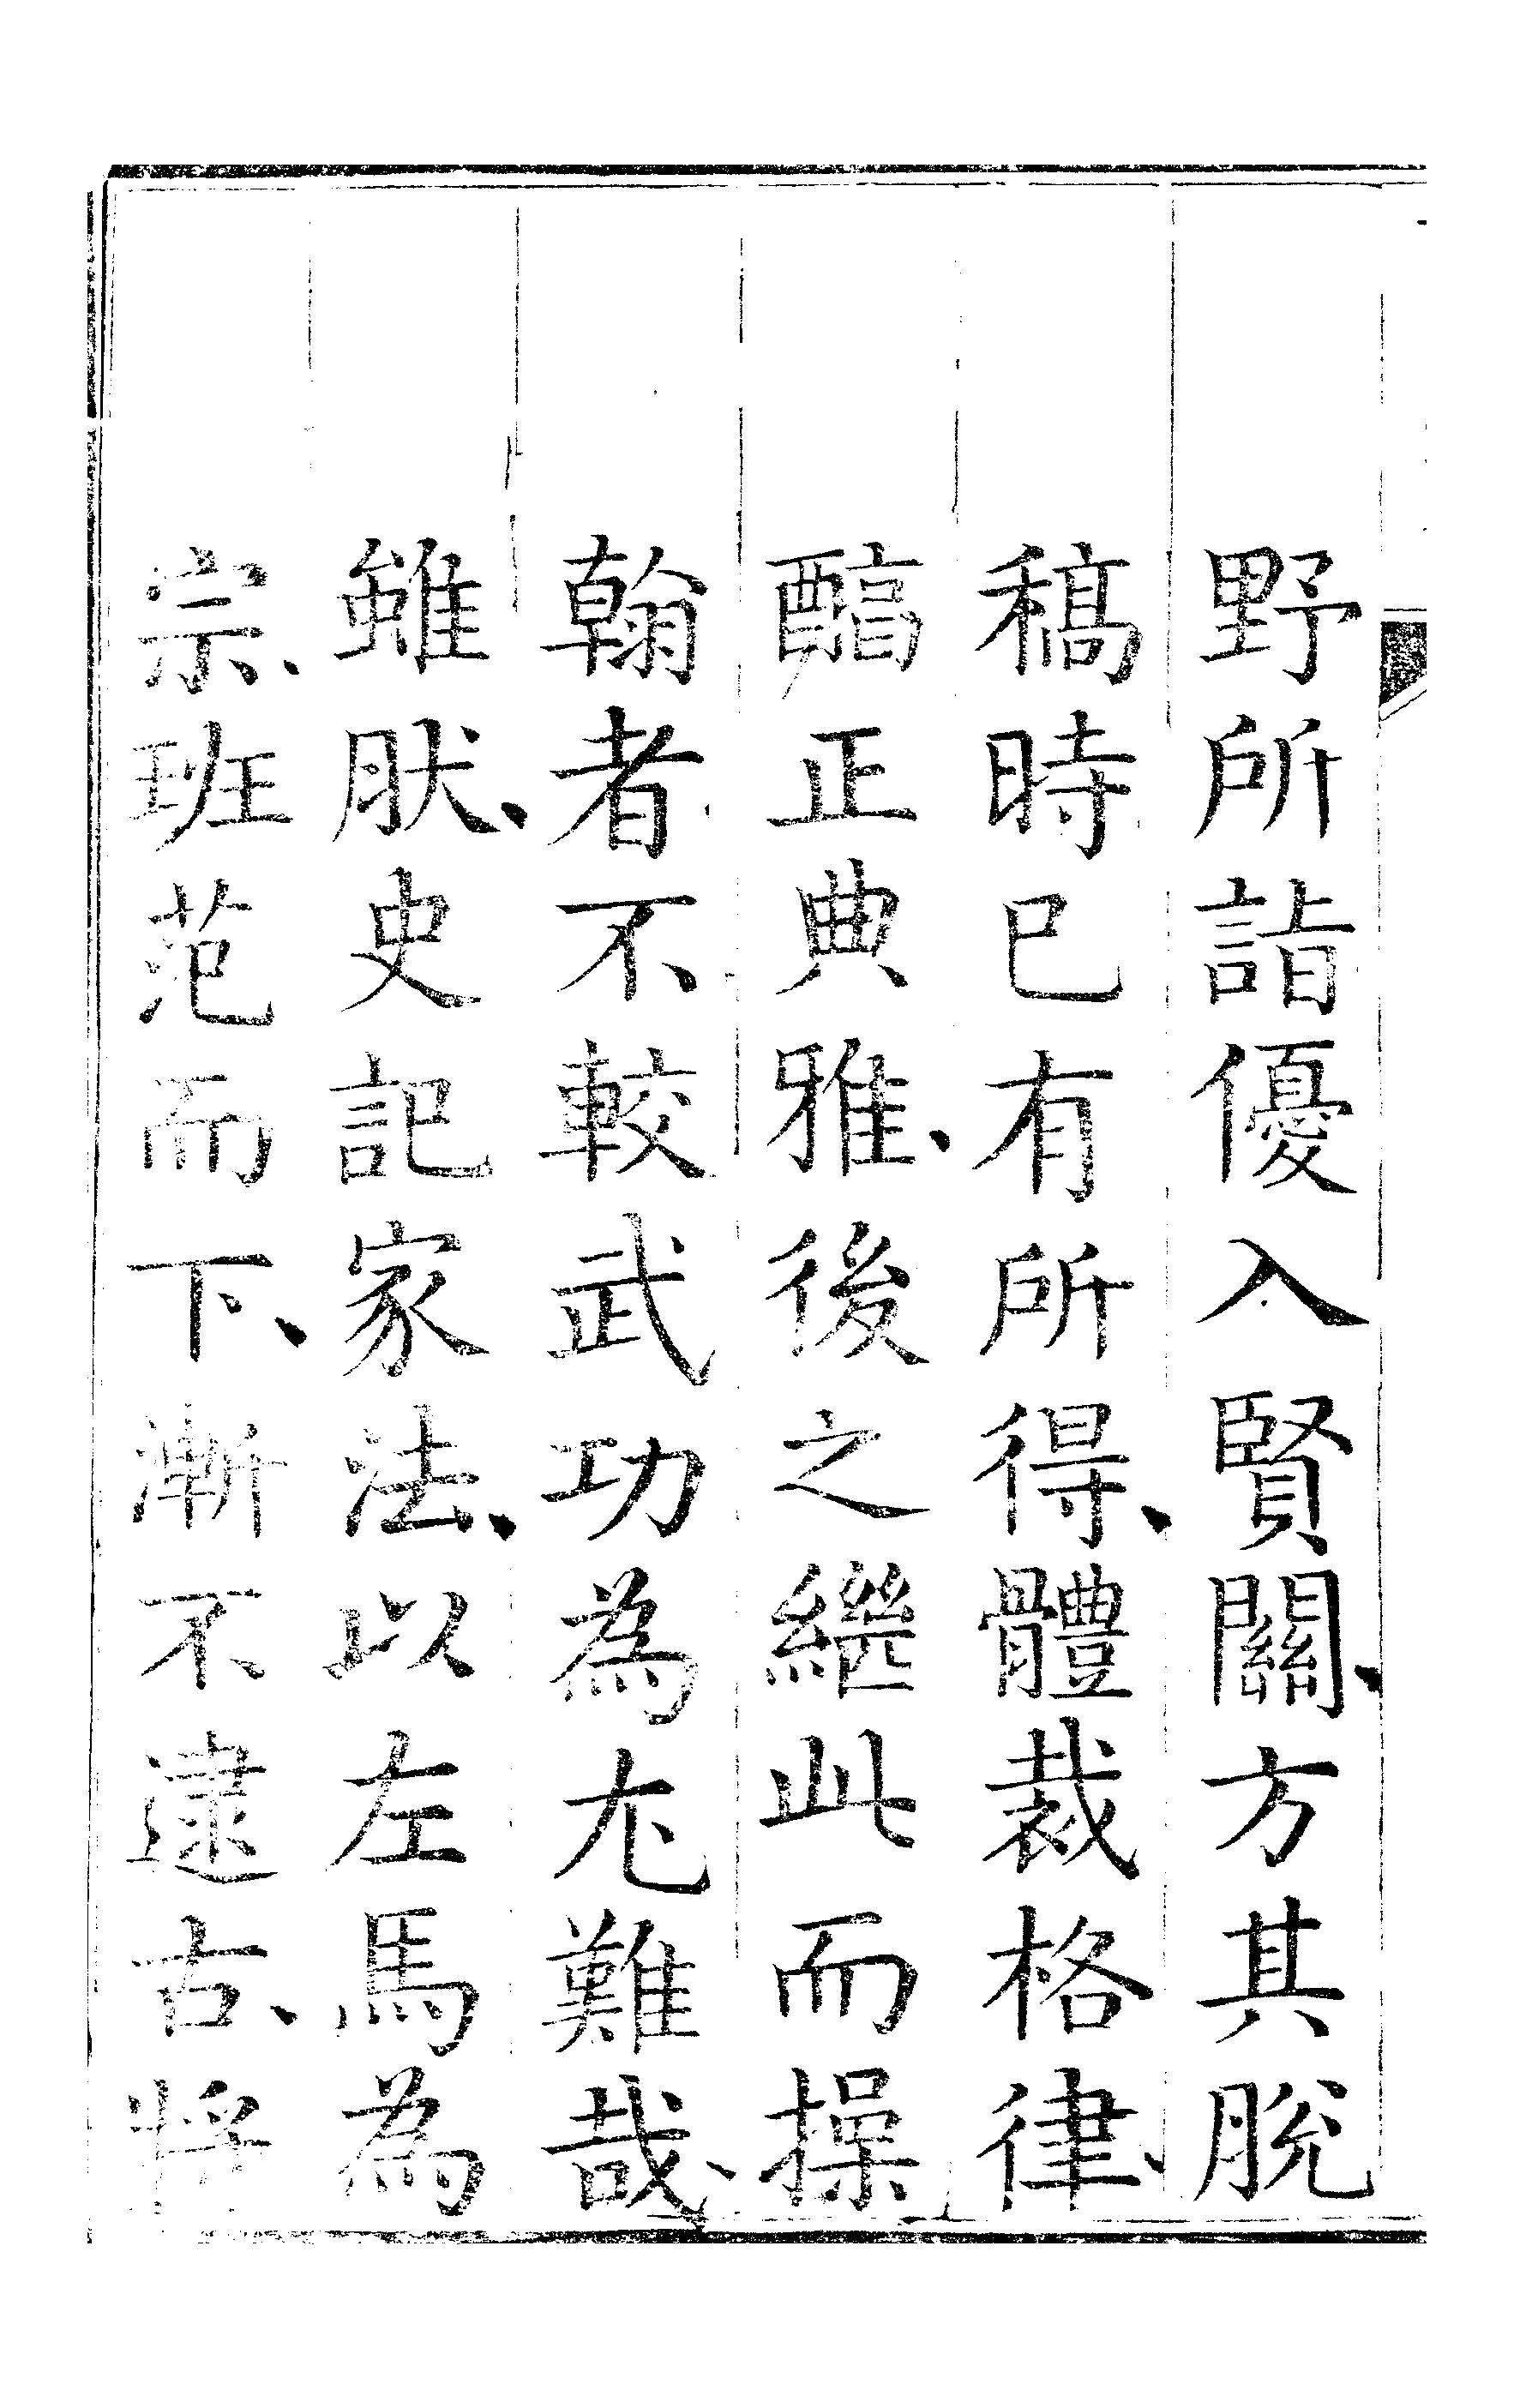 野所詣優入賢關、方其脫
稿時已有所得、體裁格律、
醕正典雅、後之繼此而操
翰者不較武功為尤難哉、
雖肰、史記家法、以左馬為
宗、班范而下、漸不逮古、將